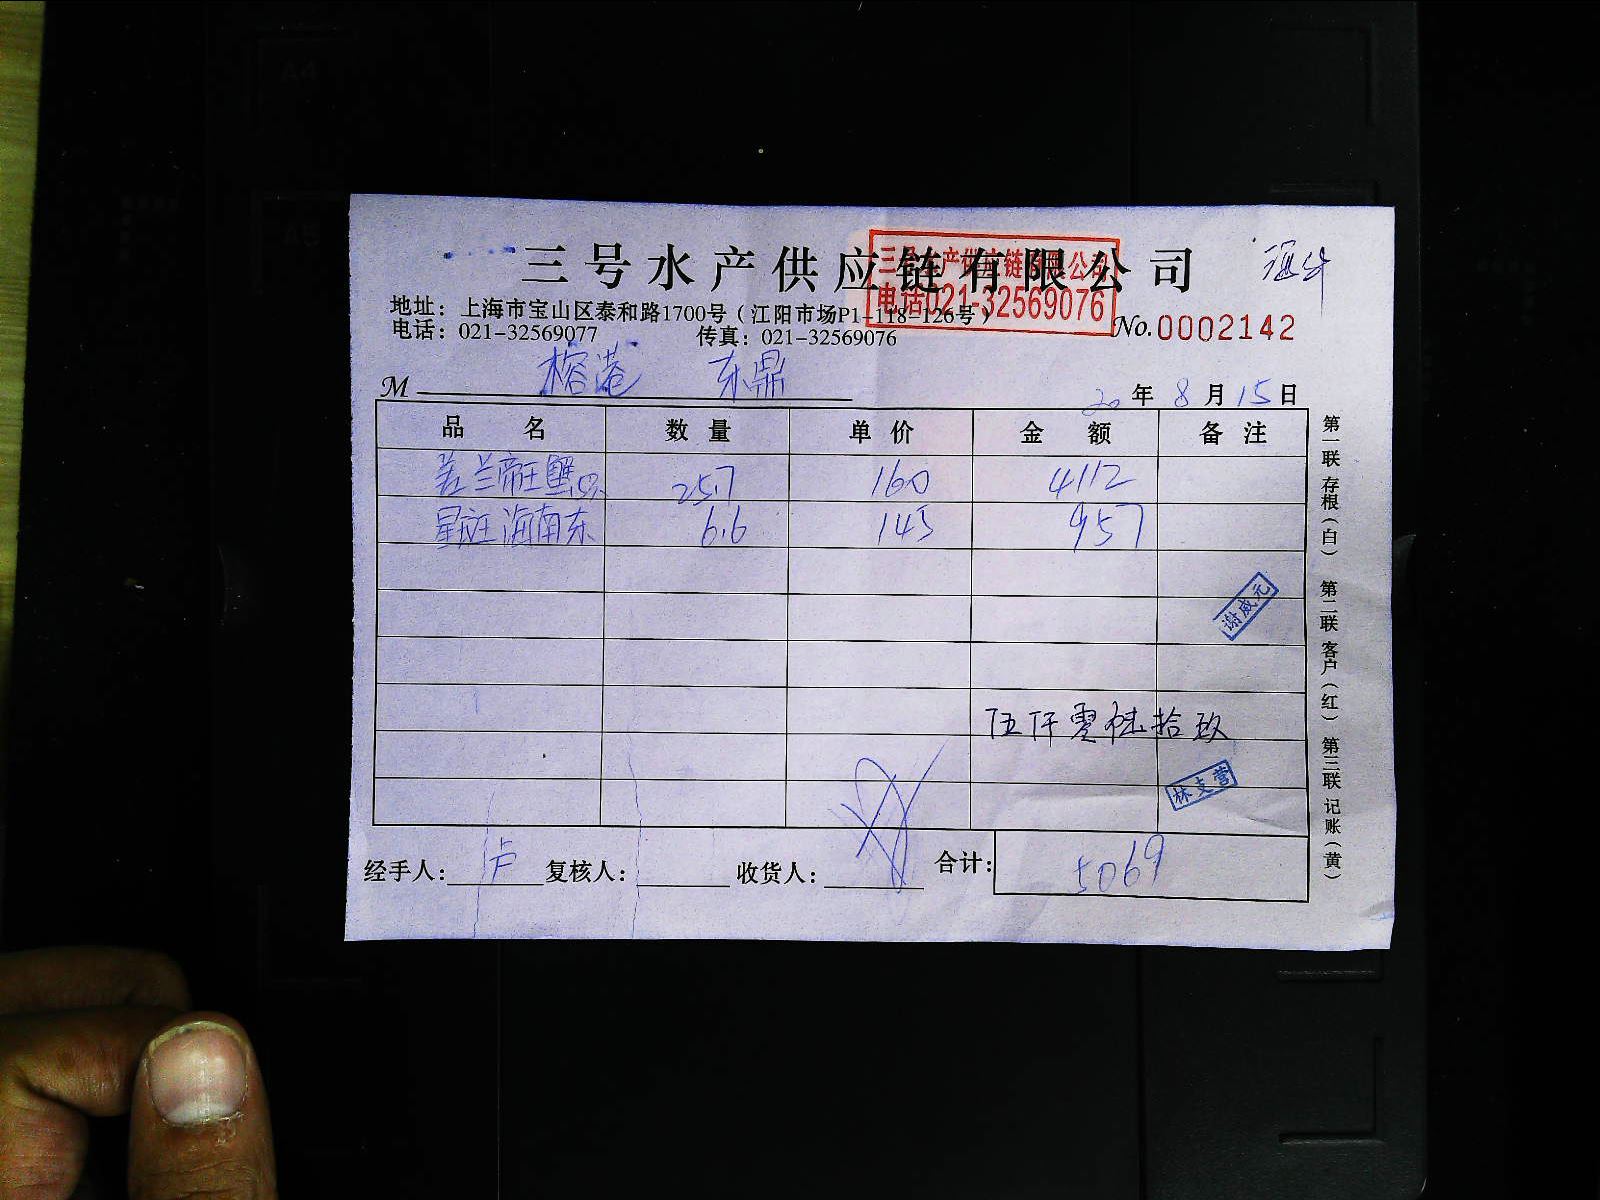 三号水产供应链有限公司
三号水产供应链有限公司
电话021-32569076
地址：上海市宝山区泰和路1700号（江阳市场P1-118-126号）
电话：021-32569077 传真：021-32569076
No.0002142
M 榕港 东鼎
20年8月15日
品名 数量 单价 金额 备注
兰帝王蟹 25.7 160 4112
星斑海南东 6.6 145 957
谢威元
伍仟零陆拾玖
林支营
经手人：卢 复核人： 收货人： 合计：5069
第一联 存根（白） 第二联 客户（红） 第三联 记账（黄）